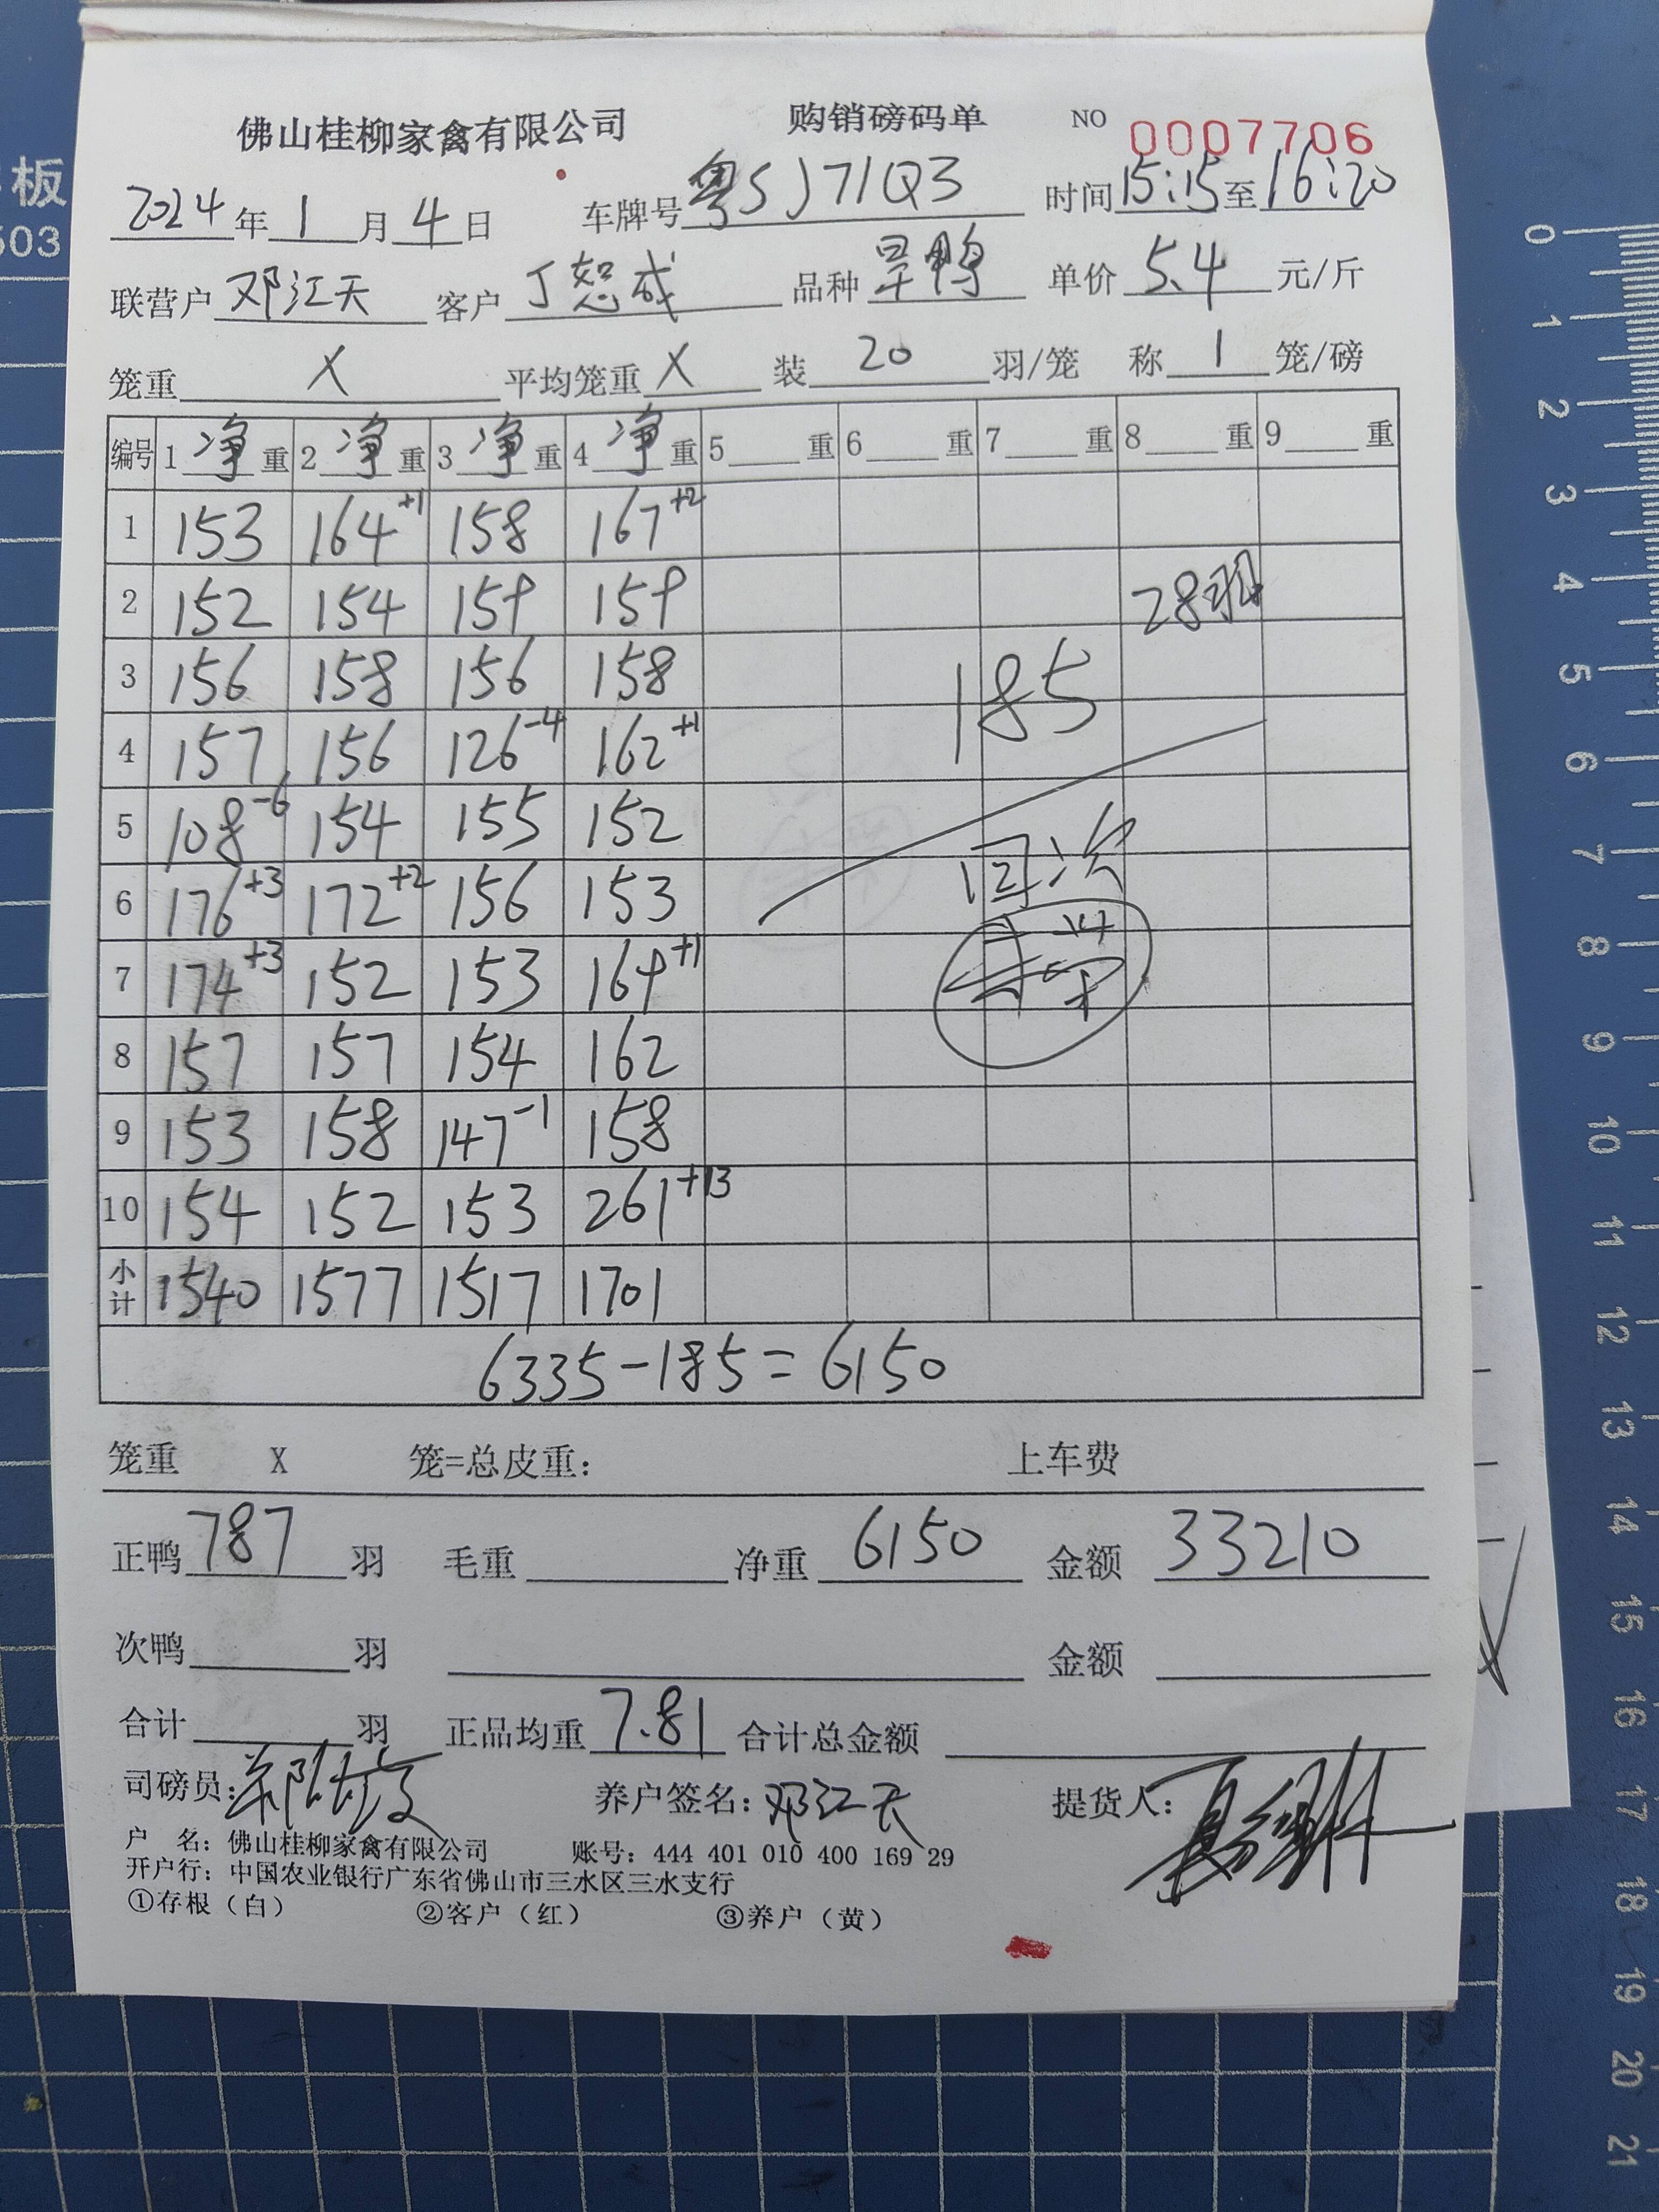 佛山桂柳家禽有限公司 购销磅码单 NO 0007706
2024年1月4日 车牌号粤SJ71Q3 时间15:15至16:20
联营户邓江天 客户丁恕成 品种旱鸭 单价5.4元/斤
笼重X 平均笼重X 装20羽/笼 称1笼/磅
编号 1净重 2净重 3净重 4净重 5重 6重 7重 8重 9重
1 153 164+1 158 167+2
2 152 154 159 159 28羽
3 156 158 156 158 185
4 157 156 126-4 162+1
5 108-6 154 155 152
6 176+3 172+2 156 153 回次
7 174+3 152 153 169+1
8 157 157 154 162
9 153 158 147-1 158
10 154 152 153 261+13
小计 1540 1577 1517 1701
6335-185=6150
笼重 X 笼=总皮重: 上车费
正鸭787羽 毛重 净重6150 金额33210
次鸭 羽 金额
合计 羽 正品均重7.81 合计总金额
司磅员: 养户签名:邓江天 提货人:
户 名: 佛山桂柳家禽有限公司 账号: 444 401 010 400 169 29
开户行: 中国农业银行广东省佛山市三水区三水支行
①存根(白) ②客户(红) ③养户(黄)
板
503
0
1
2
3
4
5
6
7
8
9
10
11
12
13
14
15
16
17
18
19
20
21